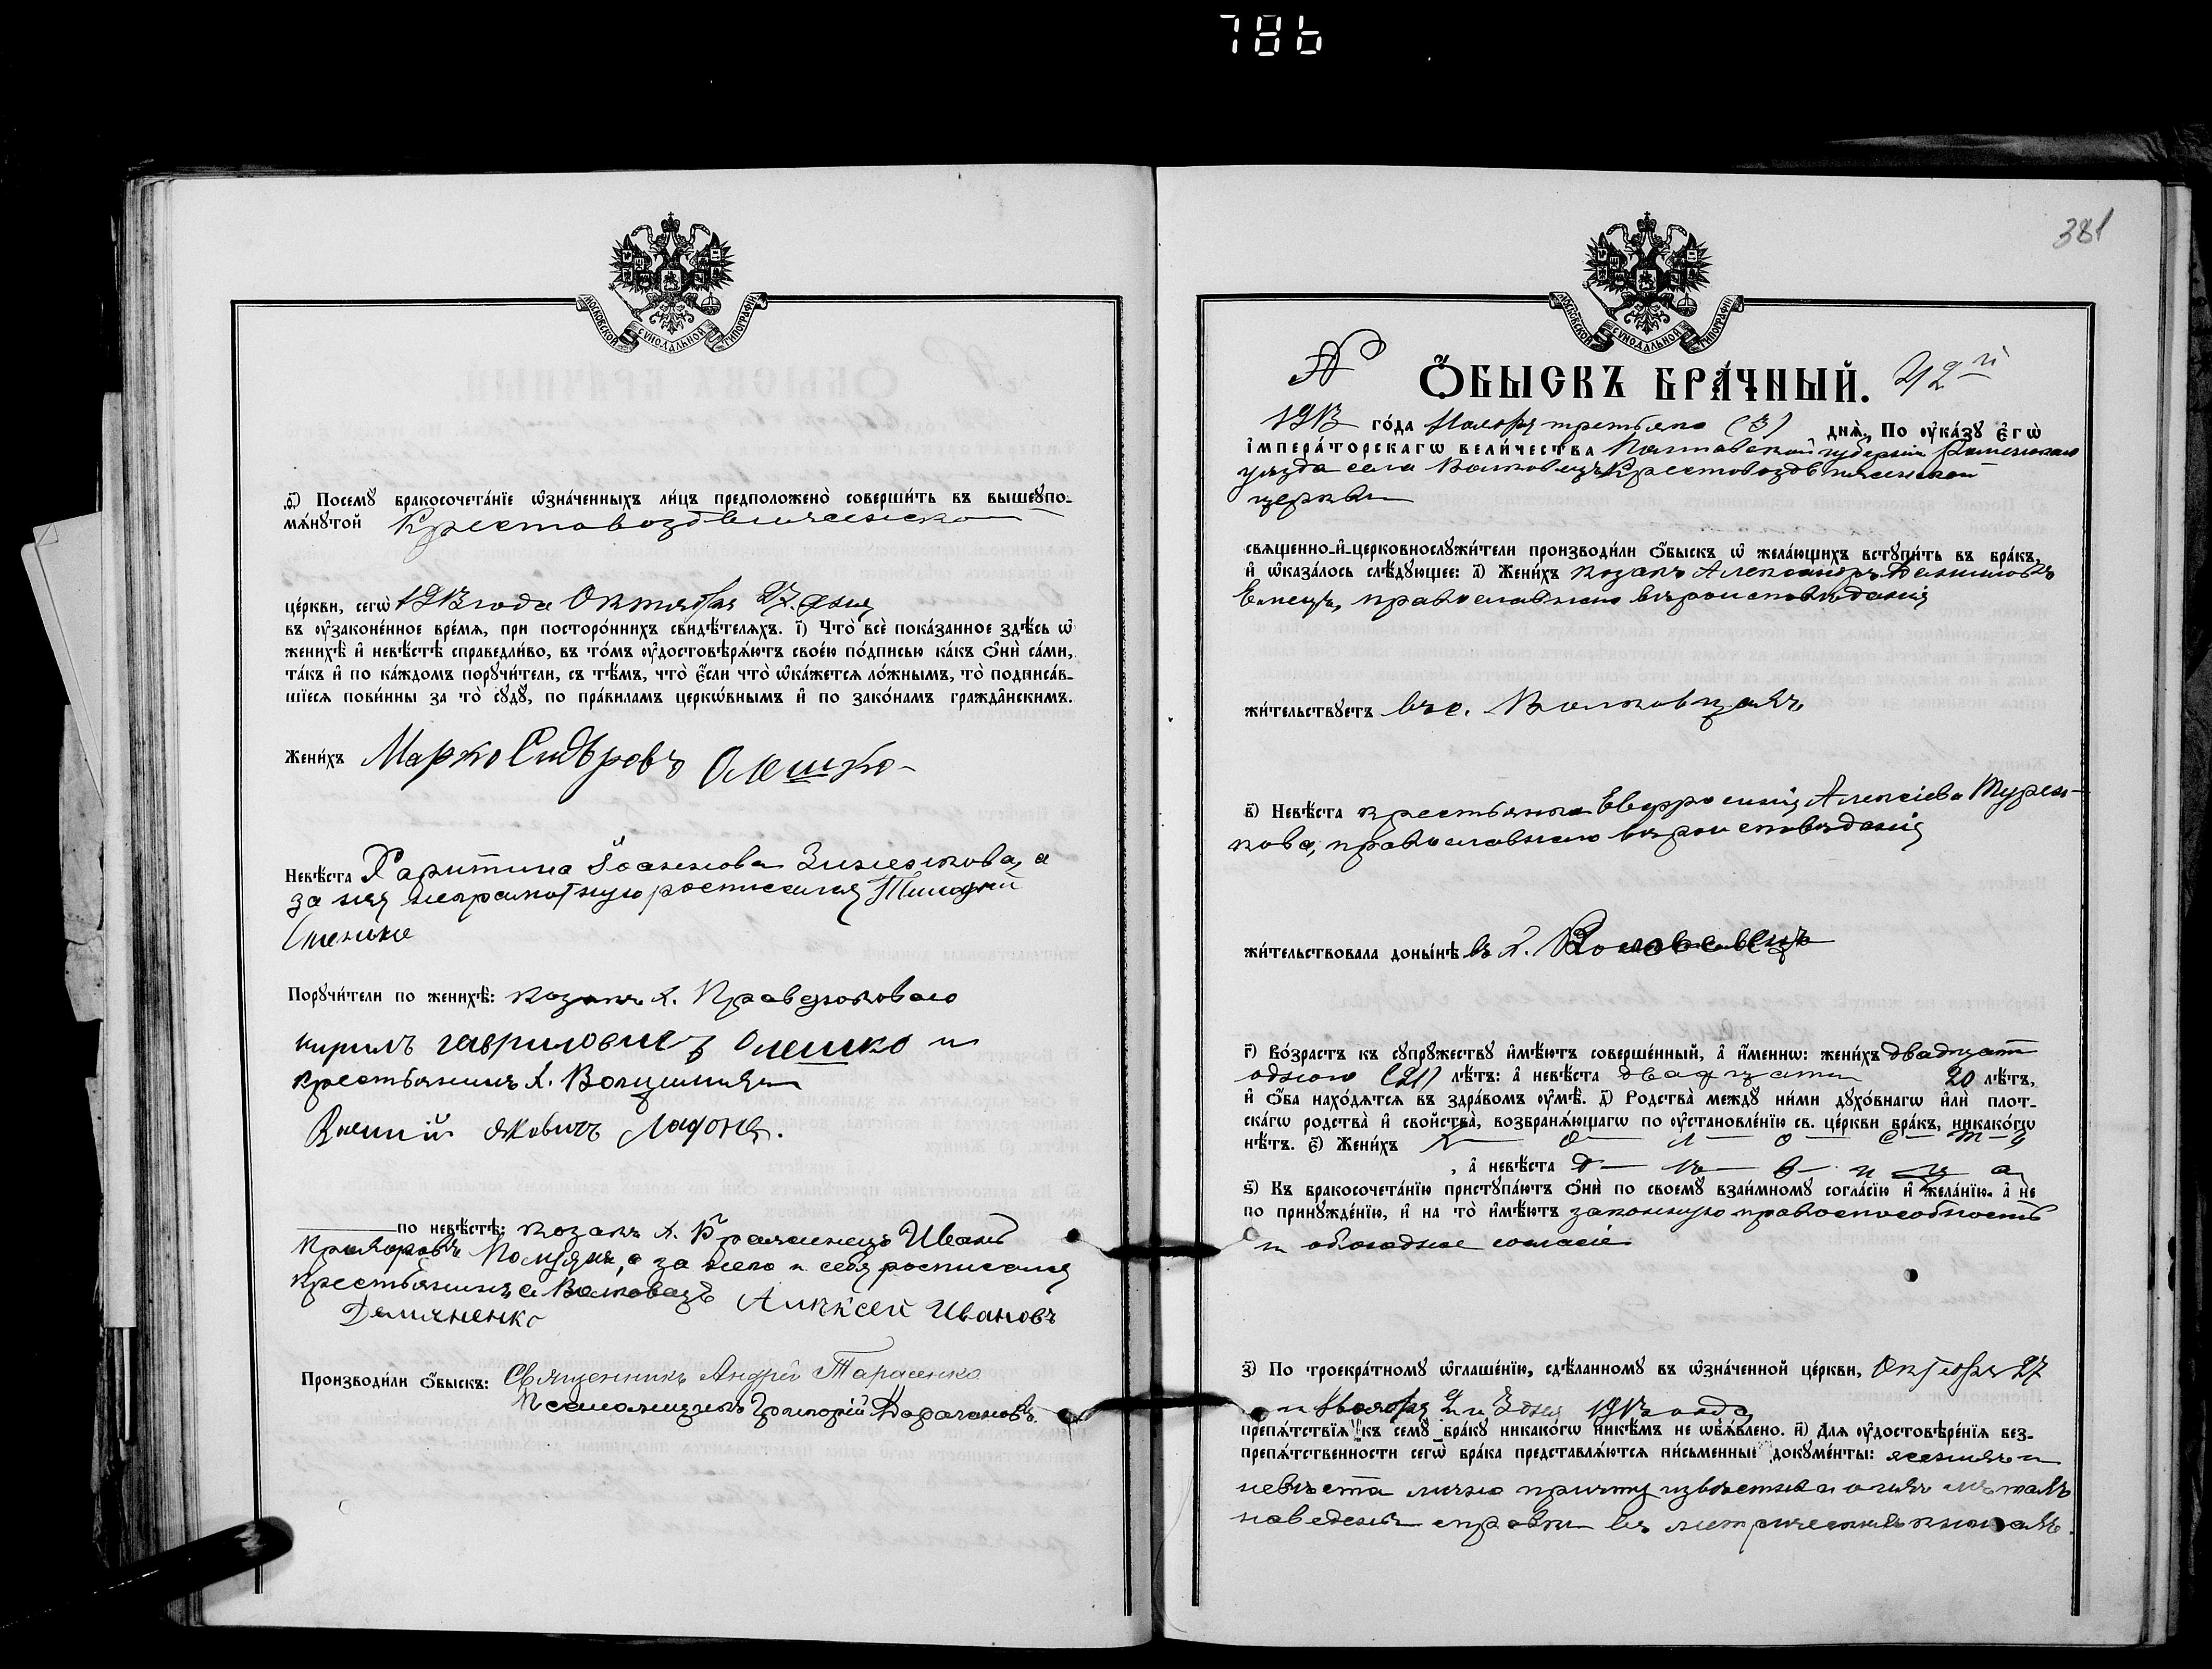 786
МОСКОВСКОЙ СѴНОДАЛЬНОЙ ТИПОГРАФІИ
ѳ҃) Посемꙋ̀ бракосочета́нїе ѡ҆зна́ченныхъ ли́цъ предположено̀ соверши́ть въ вышеꙋпо-
мѧ́нꙋтой Крестовоздвиженской
це́ркви, сегѡ̀ 1913 года Октября 27. дня
въ ᲂу҆законе́нное вре́мѧ, при посторо́ннихъ свидѣ́телѧхъ. і҃) Что̀ всѐ пока́занное здѣ́сь ѡ҆
женихѣ̀ и҆ невѣ́стѣ справедли́во, въ то́мъ ᲂу҆достовѣрѧ́ютъ свое́ю по́дписью ка́къ ѻ҆нѝ са́ми,
та́къ и҆ по ка́ждомъ порꙋчи́тели, съ тѣ́мъ, что̀ є҆́сли что̀ ѡ҆ка́жетсѧ ло́жнымъ, то̀ подписа́в-
шїесѧ пови́нны за то̀ сꙋдꙋ̀, по пра́виламъ церкѡ́внымъ и҆ по зако́намъ гражда́нскимъ.
Жени́хъ Марко Сидѣровъ Олешко
Невѣ́ста Харитина Іоаннова а
за нея неграмотную росписался
Порꙋчи́тели по женихѣ̀: козакъ х.
кирилъ гавриловичъ Олешко и
крестьянинъ х.
яковичъ
по невѣ́стѣ: козакъ х. Иванъ
а за него и себя росписался
крестьянинъ с. Волковецъ Алѣксей Ивановъ
Демяненко
Производи́ли ѻ҆́быскъ: Священникъ Андрей Тарасенко
Псаломщикъ Григорій
381
МОСКОВСКОЙ СѴНОДАЛЬНОЙ ТИПОГРАФІИ
№ Ѻ҆́БЫСКЪ БРА́ЧНЫЙ.
1913 го́да Ноября третьяго (3) днѧ̀, По ᲂу҆ка́зꙋ Є҆гѡ̀
І҆мпера́торскагѡ вели́чества Полтавской губерніи Роменскаго
уѣзда села Волковецъ Крестовоздвиженской
церкви
свѧщенно-и҆-церковнослꙋжи́тели производи́ли ѻ҆́быскъ ѡ҆ жела́ющихъ встꙋпи́ть въ бра́къ,
и҆ ѡ҆каза́лось слѣ́дꙋющее: а҃) Жени́хъ козакъ Александръ
православнаго вѣроисповѣданія
жи́тельствꙋетъ въ с. Волковцахъ
в҃) Невѣ́ста крестьянка Евфросинія Алексіева Турен-
кова, православнаго вѣроисповѣданія
жи́тельствовала доны́нѣ въ х.
г҃) Во́зрастъ къ сꙋпрꙋ́жествꙋ и҆мѣ́ютъ соверше́нный, а҆ и҆́меннѡ: жени́хъ двадцати
одного (21) лѣ́тъ: а҆ невѣ́ста двадцати 20 лѣ́тъ,
и҆ ѻ҆́ба нахо́дѧтсѧ въ здра́вомъ ᲂу҆мѣ̀. д҃) Родства̀ междꙋ̀ ни́ми дꙋхо́внагѡ и҆лѝ плот-
ска́гѡ родства̀ и҆ свойства̀, возбранѧ́ющагѡ по ᲂу҆становле́нїю св. це́ркви бра́къ, никако́гѡ
нѣ́тъ. є҃) Жени́хъ х — о — л — о — с — т — ъ
, а҆ невѣ́ста д — ѣ — в — и ц а
ѕ҃) Къ бракосочета́нїю пристꙋпа́ютъ ѻ҆нѝ по своемꙋ̀ взаи́мномꙋ согла́сїю и҆ жела́нїю. а҆ не
по принꙋжде́нїю, и҆ на то̀ и҆мѣ́ютъ законную правоспособность
и обоюдное согласіе
з҃) По троекра́тномꙋ ѡ҆глаше́нїю, сдѣ́ланномꙋ въ ѡ҆зна́ченной це́ркви, Октября 27
и Ноября 2 и 3 дня 1913 года
препѧ́тствїѧ къ семꙋ̀ бра́кꙋ никако́гѡ никѣ́мъ не ѡ҆б̾ѧ́влено. и҃) Длѧ ᲂу҆достовѣре́нїѧ без-
препѧ́тственности сегѡ̀ бра́ка представлѧ́ютсѧ пи́сьменные докꙋме́нты: женихъ и
невѣста лично причту извѣстны и о нихъ
наведены справки въ метрическихъ книгахъ.